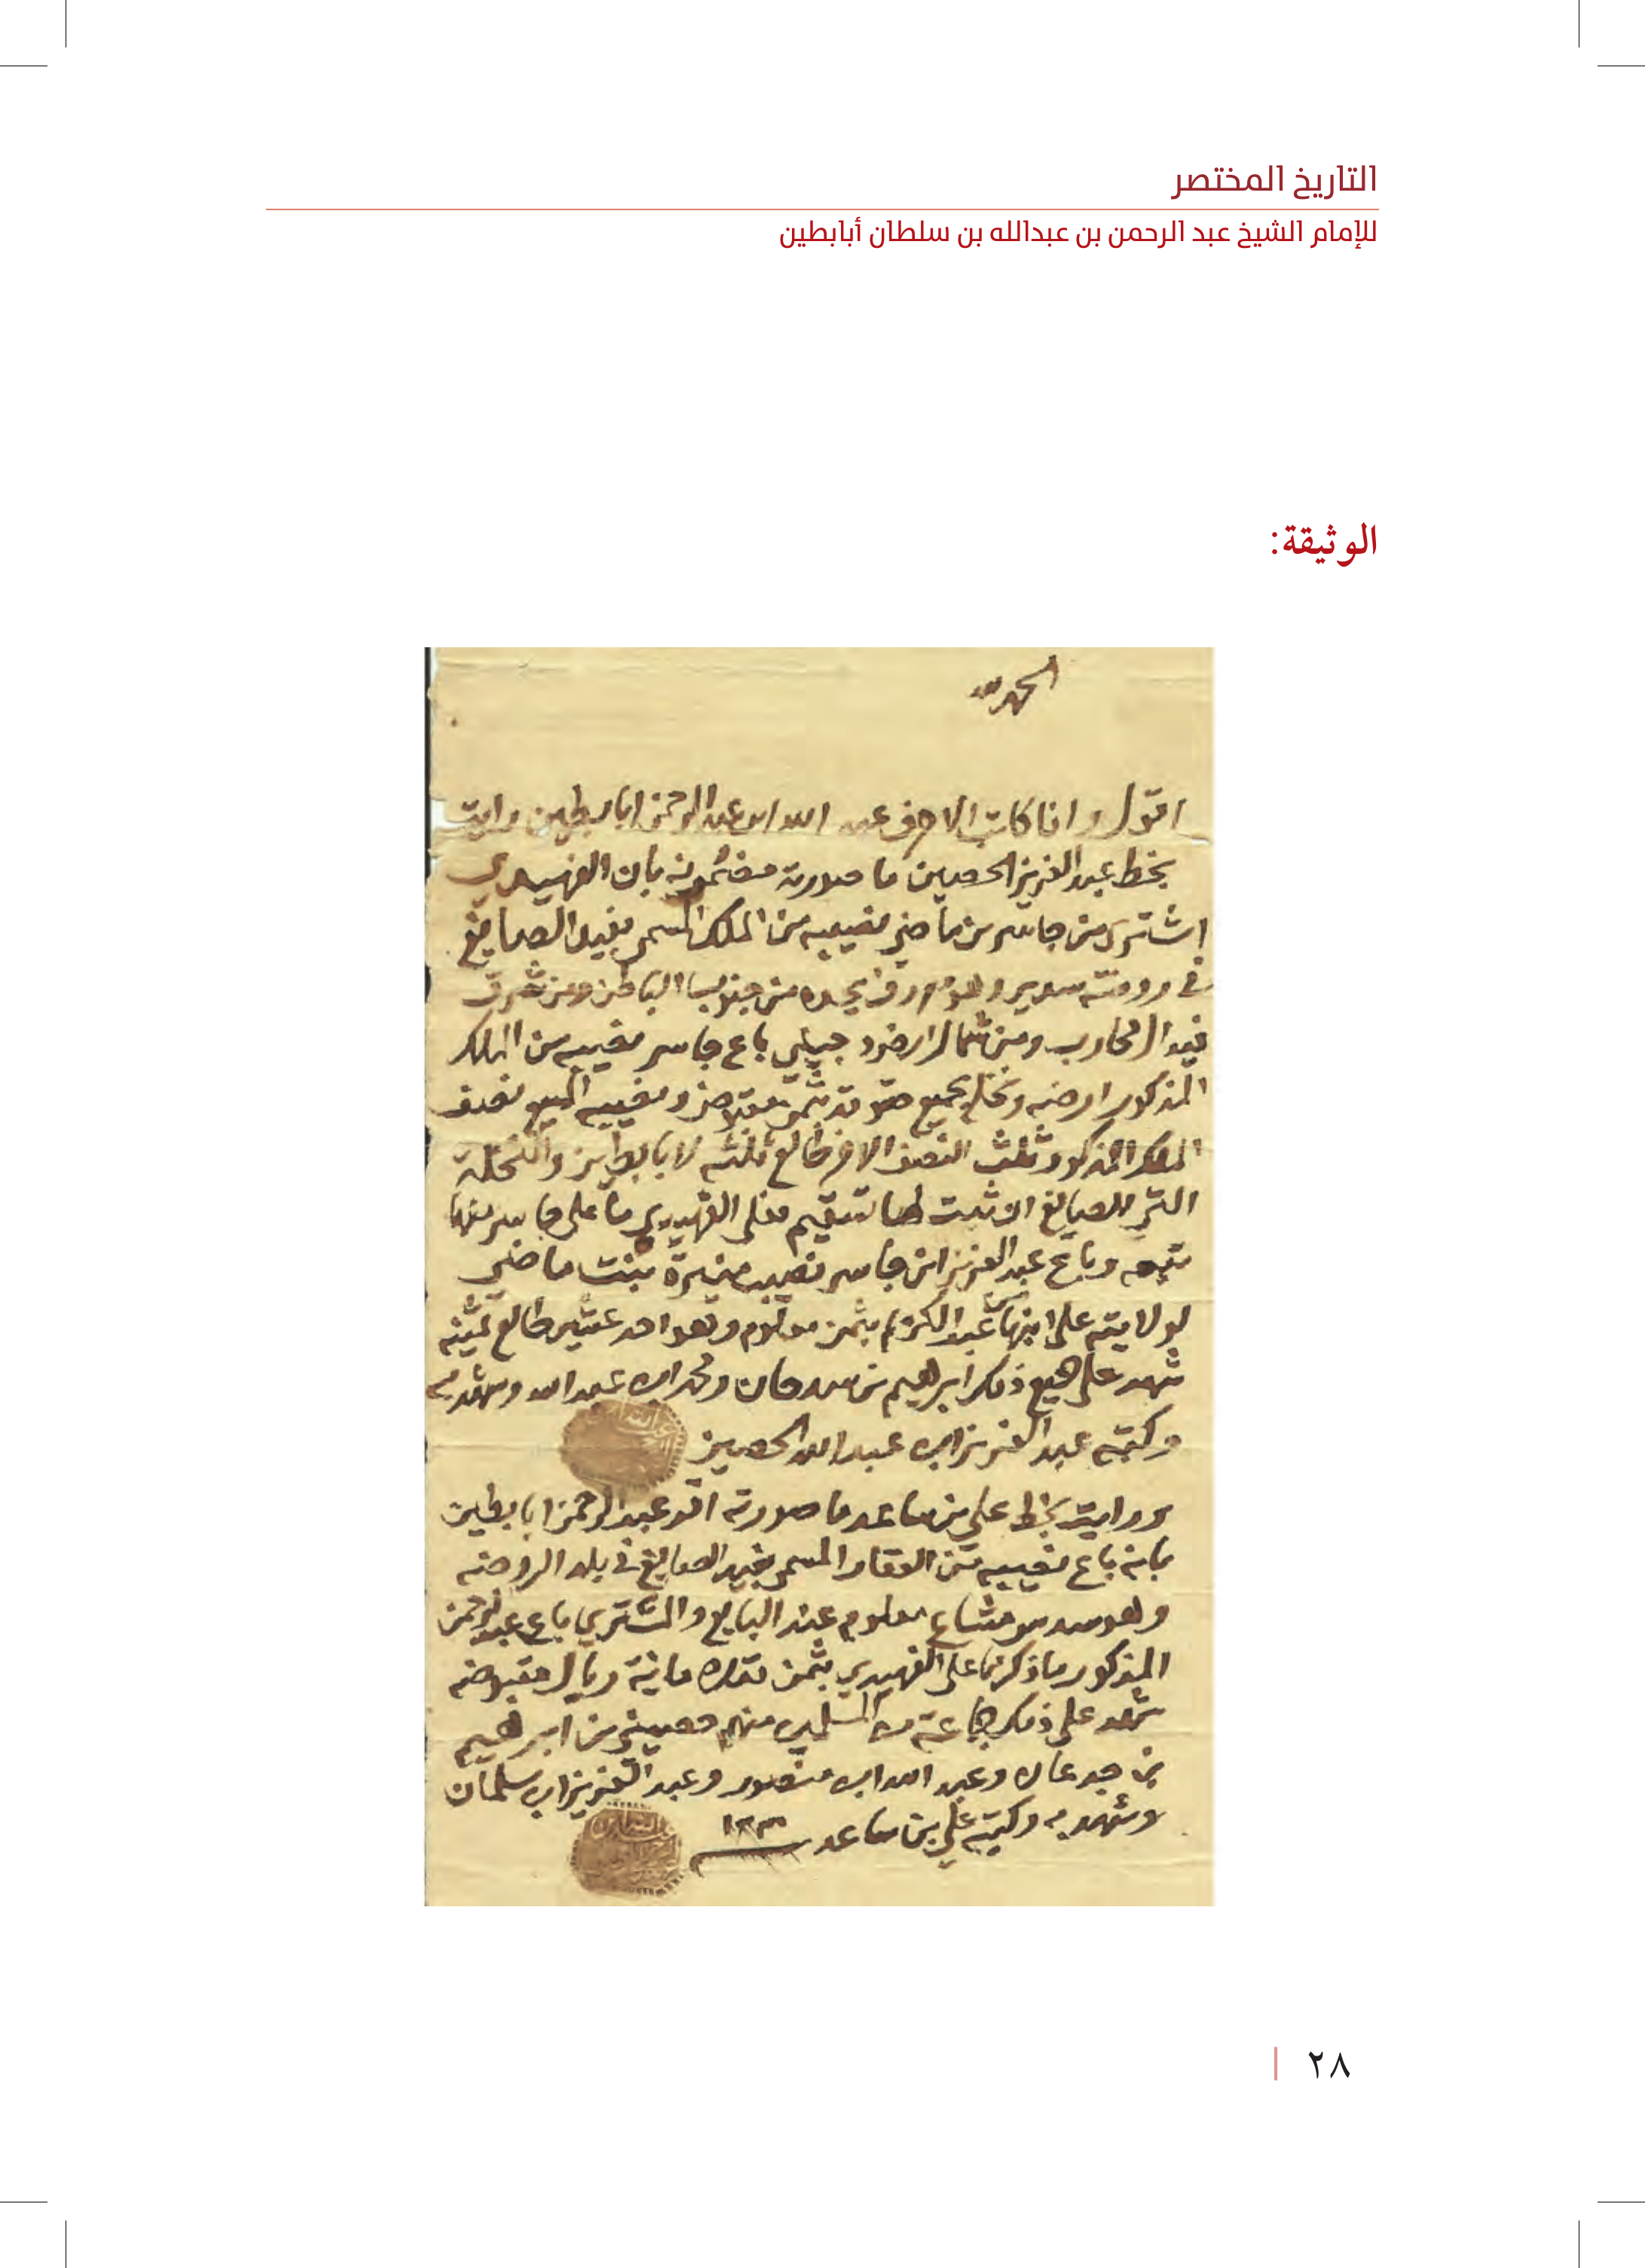 التاريخ المختصر
للإمام الشيخ عبد الرحمن بن عبدالله بن سلطان أبابطين
الوثيقة:
الحمد لله
اقول وانا كاتب الاحرف عبد الله ابن عبدالرحمن ابابطين رايت
بخط عبدالعزيز الحصين ما صورته مضمونه بان الفهيدي
اشترى من جاسر بن ماضي نصيبه من الملك المسمى بفيد الصايغ
في روضة سدير وهو معروف يحده من جنوب الباطن ومن شرق
فيد المحارب ومن شمال ارض باع جاسر نصيبه من الملك
المذكور ارضه ونخله بجميع حقوقه بثمن ونصيبه المبيع نصف
الملك المذكور وثلث النصف الاخر طالع ثلثه لابابطين والنخلة
التي للصايغ ان ثبت لها تسقيم فعلى الفهيدي ما على جاسر منها
تبعه وباع عبدالعزيز ابن جاسر نصيب منيرة بنت ماضي
لولايته على ابنها عبدالكريم بثمن معلوم وهو احد عشر طالع ثمنه
شهد على جميع ذلك ابراهيم بن سرحان ومحمد ابن عبدالله وشهد به
وكتبه عبدالعزيز ابن عبدالله الحصين
ورايت بخط علي بن ساعد ما صورته اقر عبدالرحمن ابابطين
بانه باع نصيبه من العقار المسمى بفيد الصايغ في بلد الروضه
وهو سدس مشاع معلوم عند البايع والمشتري باع عبدالرحمن
المذكور ما ذكرنا على الفهيدي بثمن قدره ماية ريال مقبوضه
شهد على ذلك جماعة من المسلمين منهم حسين بن ابراهيم
بن جدعان وعبد الله ابن منصور وعبد العزيز ابن سلمان
وشهد به وكتبه علي بن ساعد
٢٨